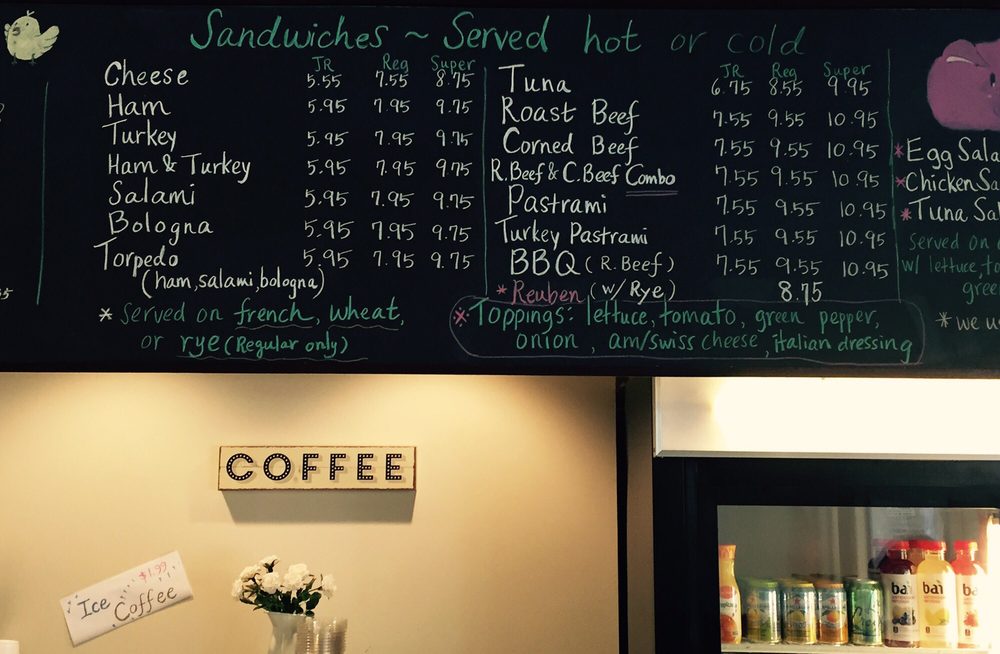 Sandwiches ~ Served hot or cold
JR Reg Super
Cheese 5.55 7.55 8.75
Ham 5.95 7.95 9.75
Turkey 5.95 7.95 9.75
Ham & Turkey 5.95 7.95 9.75
Salami 5.95 7.95 9.75
Bologna 5.95 7.95 9.75
Torpedo 5.95 7.95 9.75
(ham, salami, bologna)
* Served on french, wheat,
or rye (Regular only)
JR Reg Super
Tuna 6.75 8.55 9.95
Roast Beef 7.55 9.55 10.95
Corned Beef 7.55 9.55 10.95
R.Beef & C.Beef Combo 7.55 9.55 10.95
Pastrami 7.55 9.55 10.95
Turkey Pastrami 7.55 9.55 10.95
BBQ (R. Beef) 7.55 9.55 10.95
* Reuben (w/ Rye) 8.75
* Toppings: lettuce, tomato, green pepper,
onion, am/swiss cheese, italian dressing
* Egg Sala
* Chicken Sa
* Tuna Sal
Served on
w/ lettuce, to
gree
* we u
COFFEE
$1.99
Ice Coffee
bai
bai
bai